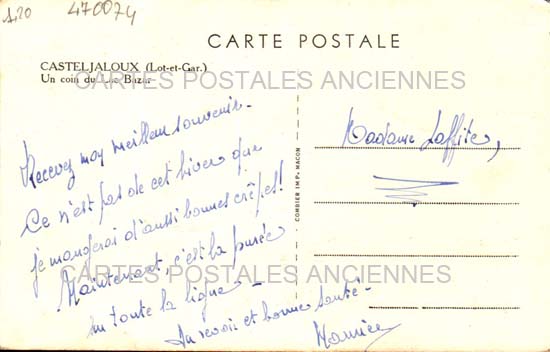 1,20
470074
CARTE POSTALE
CASTELJALOUX (Lot-et-Gar.)
Un coin du Lac Bazar
CARTES POSTALES ANCIENNES
Recevez mon meilleur souvenir.
Ce n'est pas de cet hiver que
je mangerai d'aussi bonnes crêpes!
Maintenant, c'est la purée
sur toute la ligne -
Au revoir et bonne santé -
Maurice
COMBIER IMP. MACON
Madame Laffite,
CARTES POSTALES ANCIENNES